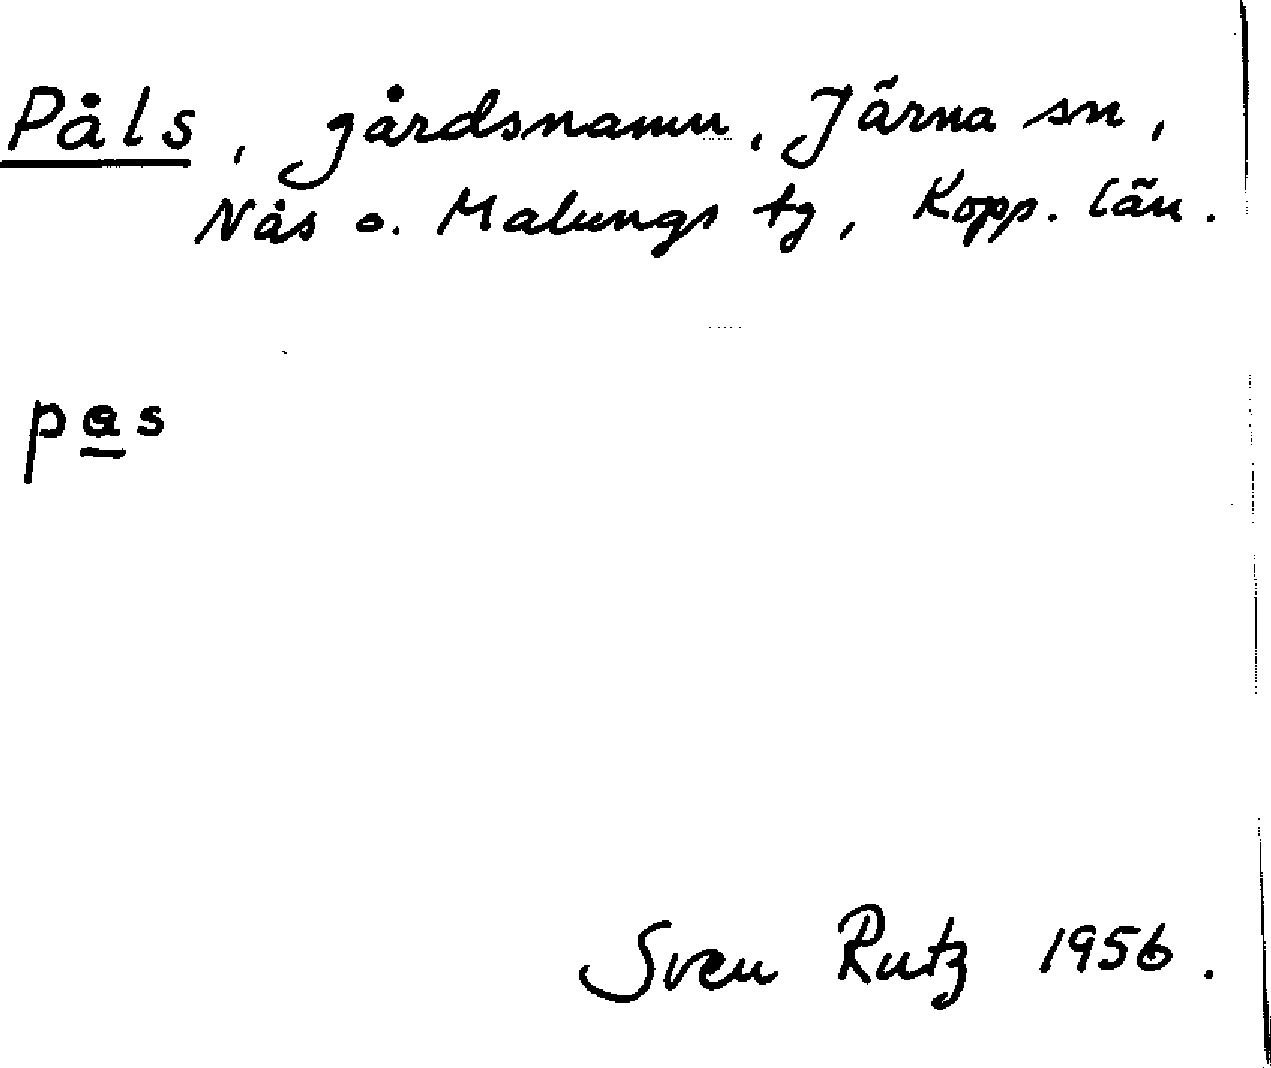 Påls, gårdsnamn. Järna sn,
Nås o. Malungs tg, Kopp. län.
pas
Sven Rutz 1956.